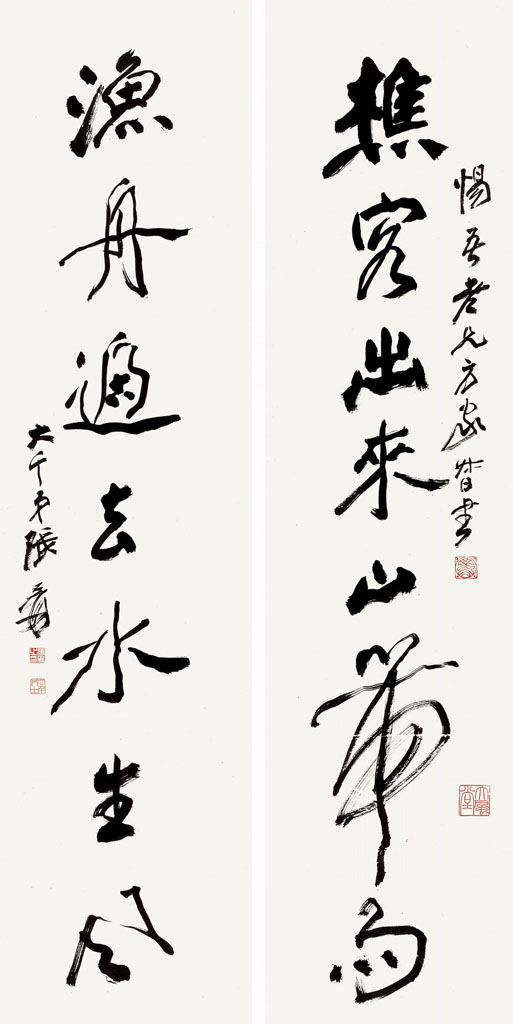 惕吾老兄方家督書
大風堂
樵客出來山帶雨
漁舟過去水生風
大千弟張爰